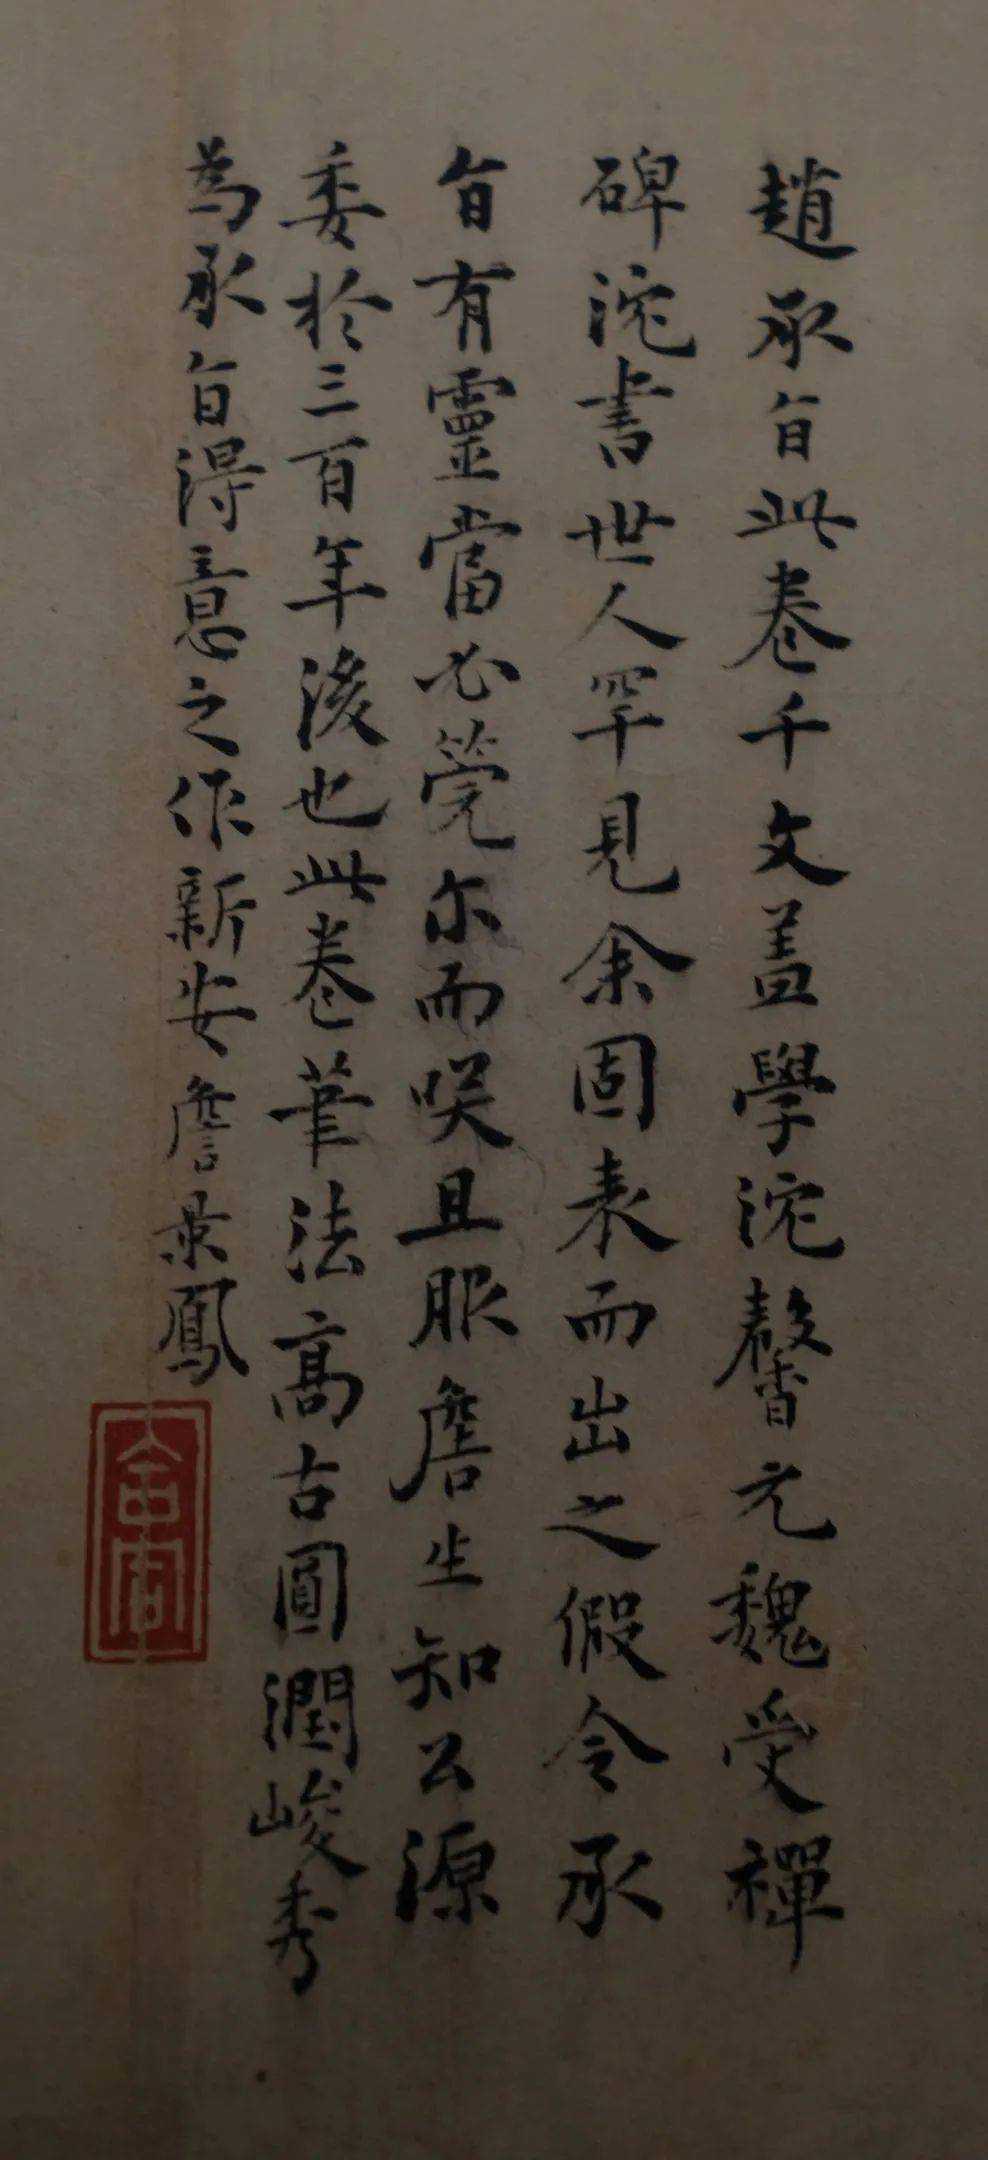 趙承旨此卷千文蓋學沱馨元魏受禪
碑沱書世人罕見余固表而出之假令承
旨有靈當必莞尔而咲且服詹生知公源
委於三百年後也此卷筆法高古圓潤峻秀
為承旨得意之作新安詹景鳳